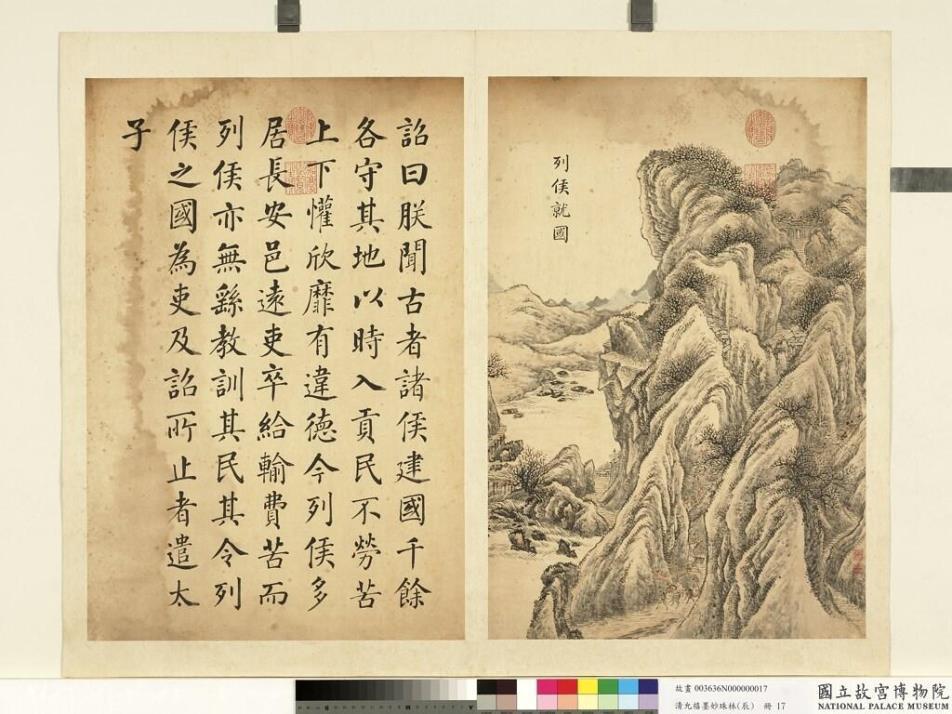 列侯就國
詔曰朕聞古者諸侯建國千餘
各守其地以時入貢民不勞苦
上下懽欣靡有違德今列侯多
居長安邑遠吏卒給輸費苦而
列侯亦無繇教訓其民其令列
侯之國為吏及詔所止者遣太
子
故畫 003636N000000017
清允禧墨妙珠林(辰) 冊 17
國立故宮博物院
NATIONAL PALACE MUSEUM